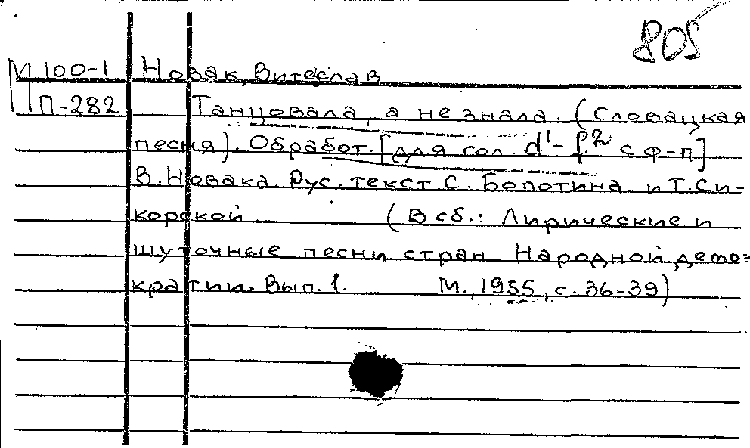 805
М 100-1 Новак, Витеслав
П-282 Танцовала, а не знала. (Словацкая
песня). Обработ. [для сол. d¹-f² с ф-п]
В. Новака. Рус. текст С. Болотина и Т. Си-
корской (В сб.: Лирические и
шуточные песни стран Народной демо-
кратии. Вып. 1. М., 1955, с. 36-39)